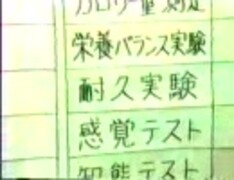 カロリー量測定
栄養バランス実験
耐久実験
感覚テスト
知能テスト